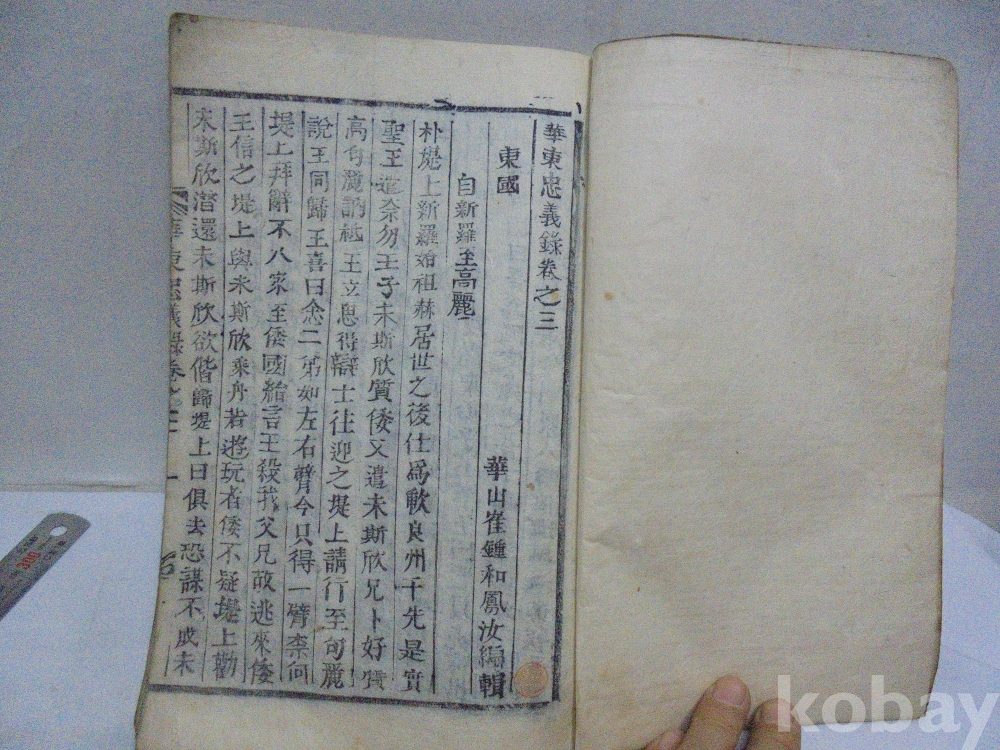 華東忠義錄卷之三
華山崔鍾和鳳汝編輯
東國
自新羅至高麗
朴堤上新羅始祖赫居世之後仕爲歃良州干先是實
聖王遣奈勿王子未斯欣質倭又遣未斯欣兄卜好質
高句麗訥祗王立思得辯士往迎之堤上請行至句麗
說王同歸王喜曰念二弟如左右臂今只得一臂柰何
堤上拜辭不入家至倭國紿言王殺我父兄故逃來倭
王信之堤上與未斯欣乘舟若遊玩者倭不疑堤上勸
未斯欣潛還未斯欣欲偕歸堤上曰俱去恐謀不成未
華東忠義錄卷之三 一
kobay